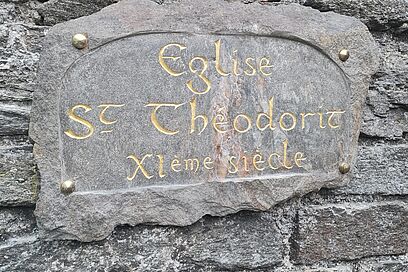 Eglise
St Théodorit
XIème siècle